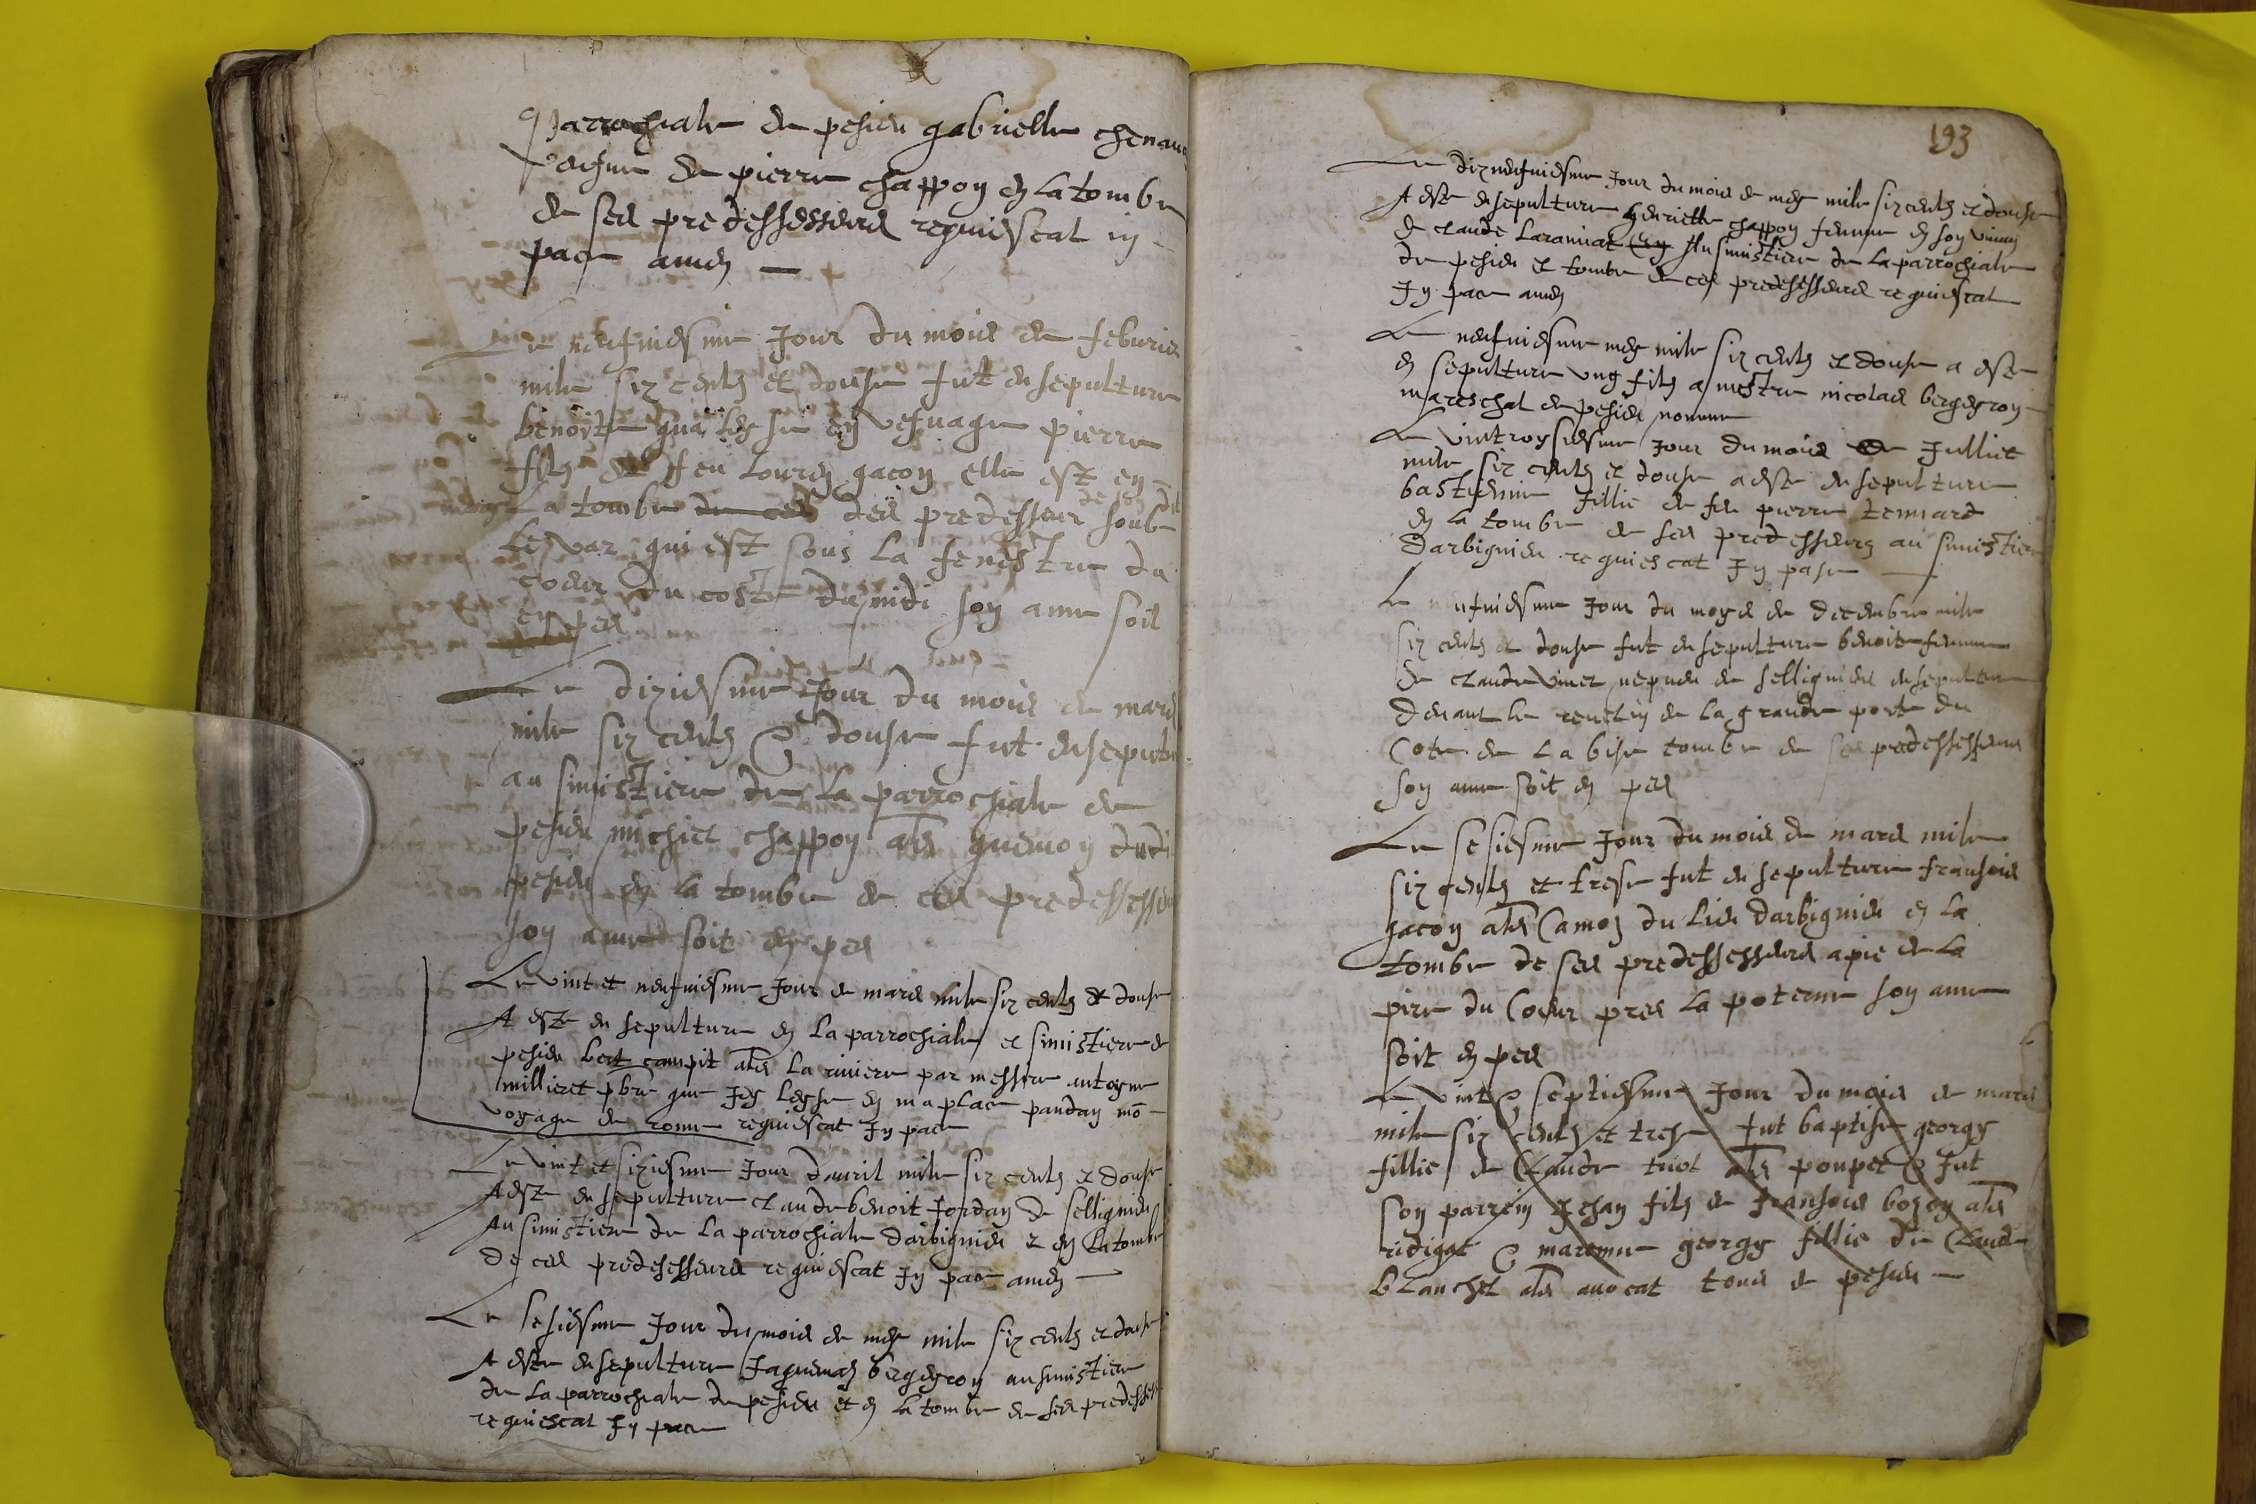 Parrochiale de pesieu gabrielle chenau
vesfue de pierre chappon en la tombe
de ses predessesseurs requiescat in
pace amen
Le neufuiesme Jour du mois de feburier
mile six cents et douse fut ensepulture
benoyte en vesuage pierre
filz de feu Lourens gacon elle est en
la tombe des predesseur de son dit soub
le var qui est sous la fenestre du
coeur du coste du midi son ame soit
en pes
Le diziesme Jour du mois de mars
mile six cents & douse fut ensepultu
au simistiere de la parrochiale de
pesieu michiel chappon als guemoy dudi
pesieu en la tombe de ces predessesseu
son ame soit en pes
Le vint et neufuiesme Jour de mars mile six cents et douse
A este en sepulture en la parrochiale et simistiere de
pesieu als La riuiere par messire antoyne
millieret pbre que Jey Leysse en ma place pandan mon
voyage de rome requiescat Jn pace
Le vint et siziesme Jour dauril mile six cents et douse
A este ensepulture claude benoit Jordan de sellignieu
Au simistiere de La parrochiale darbignieu et en La tombe
de ces predesesseurs requiescat Jn pace amen
Le sesiesme Jour du mois de mey mile six cents et douse
A este ensepulture Jaquemaz bergeron au simistiere
de La parrochiale de pesieu et en La tombe de ses predesses
requiescat Jn pace
193
Le dizneufuiesme Jour du mois de mey mile six cents et douse
A este ensepulture henriette chappon femme en son viuan
de claude Larauinat Au simistiere de La parrochiale
de pesieu et tombe de ces predesesseurs requiescat
Jn pace amen
Le neufuiesme mey mile six cents et douse a este
en sepulture ung filz a mestre nicolas bergeron
mareschal de pesieu nomme
Le vintroysiesme Jour du mois de Julliet
mile six cents et douse a este ensepulture
bastienne fillie de feu pierre tennard
en la tombe de ses predesseurs au simistiere
darbignieu requiescat Jn pase
Le neufuiesme Jour du moys de decembre mile
six cents et douse fut ensepulture benoite femme
de claude viuet nepueu de sellignieu ensepulture
deuant le reuelin de la grande porte du
Cote de La bise tombe de ses predessesseurs
son ame soit en pes
Le sesiesme Jour du mois de mars mile
six cents et trese fut ensepulture fransois
gacon als Camoz du Lieu darbignieu en La
tombe de ses predessesseurs a pie de La
pire du Coeur pres La poterne son ame
soit en pes
Le vint & septiesme Jour du mois de mars
mile six cents et trese fut baptise george
fillie de Claude triot als poupet & fut
son parrein Jehan filz de fransois bozon als
ridigat & maremne george fillie de Claude
blanchet als auocat tous de pesieu